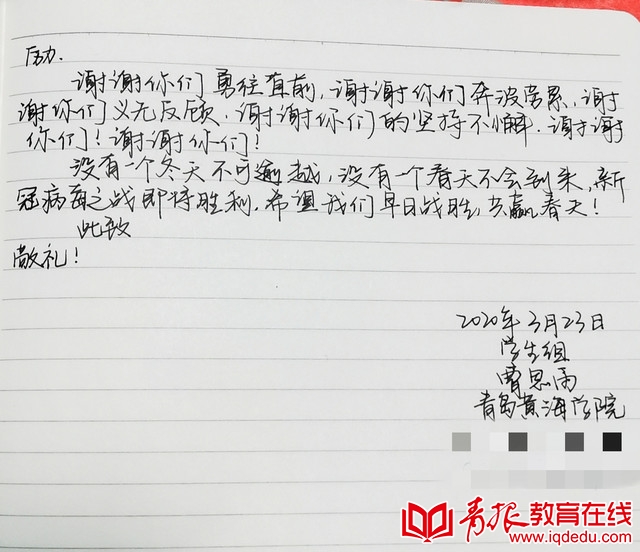 力.
谢谢你们勇往直前，谢谢你们奔波劳累，谢谢
谢你们义无反顾，谢谢你们的坚持不懈．谢谢谢
你们！谢谢你们！
没有一个冬天不可逾越，没有一个春天不会到来，新
冠病毒之战即将胜利．希望我们早日战胜，共赢春天！
此致
敬礼！
2020年3月23日
学生组
曹思雨
青岛黄海学院
青报教育在线
www.iqdedu.com